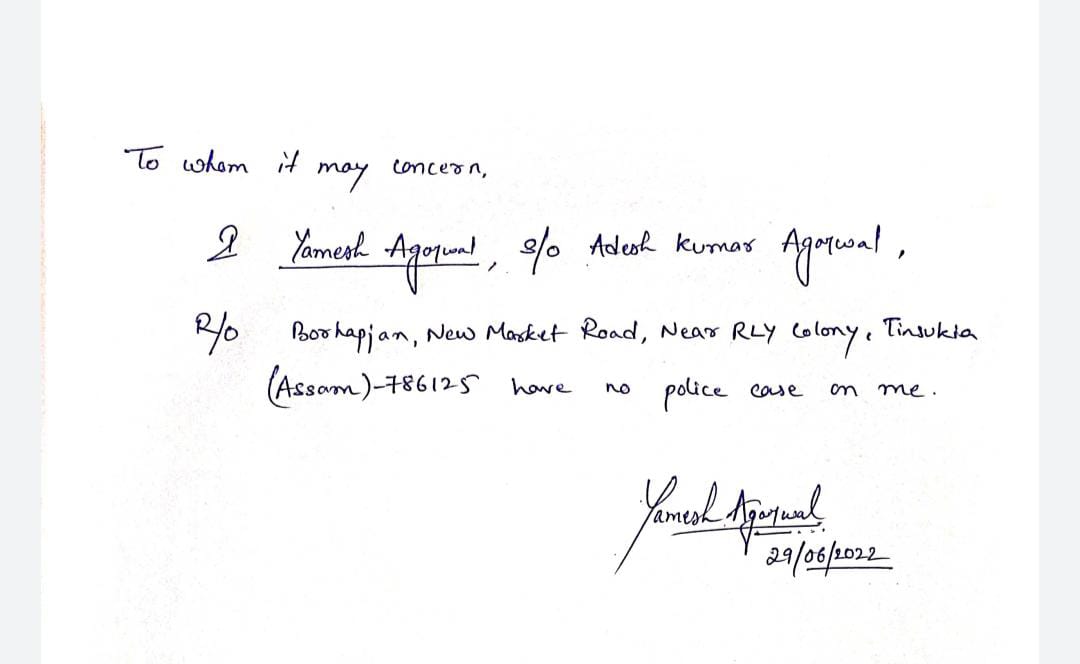 To whom it may concern,
I Yamesh Agarwal, s/o Adesh kumar Agarwal,
R/o Borhapjan, New Market Road, Near RLY Colony, Tinsukia
(Assam)-786125 have no police case on me.
Yamesh Agarwal
29/06/2022